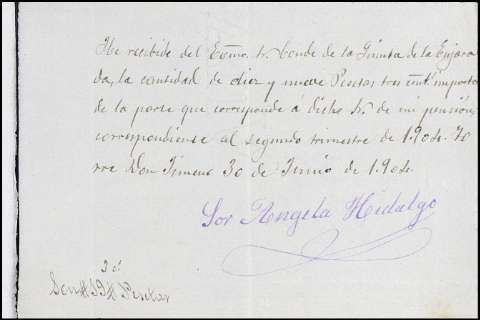 He recibido del Exmo. Sr. Conde de la Quinta de la Enjara
da, la cantidad de diez y nueve Pesetas tres cent. importe
de la parte que corresponde á dicho Sr. de mi pensión,
correspondiense al segundo trimestre de 1.904. To
rre Don Jimeno 30 de Junio de 1.904.
Sor Angela Hidalgo
Son # 19 # Pesetas